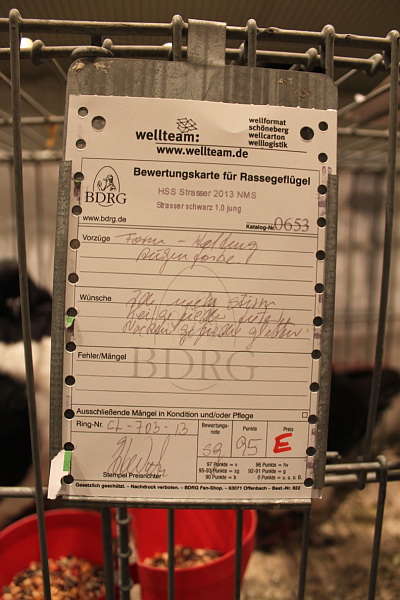 wellteam:
wellformat
schöneberg
wellcarton
welllogistik
www.wellteam.de
Bewertungskarte für Rassegeflügel
HSS Strasser 2013 NMS
Strasser schwarz 1,0 jung
BDRG
www.bdrg.de
Katalog-Nr. 0653
Vorzüge Form - Haltung
Augenfarbe
Wünsche
BDRG
Fehler/Mängel
Ausschließende Mängel in Kondition und/oder Pflege
Ring-Nr. CL-703-13
Bewertungs-note sg
Punkte 95
Preis E
Stempel Preisrichter
97 Punkte = v
96 Punkte = hv
93-95 Punkte = sg
92-91 Punkte = g
90 Punkte = b
0 Punkte = u. o. b.
Gesetzlich geschützt. - Nachdruck verboten. - BDRG Fan-Shop. - 63071 Offenbach - Best.-Nr. 822